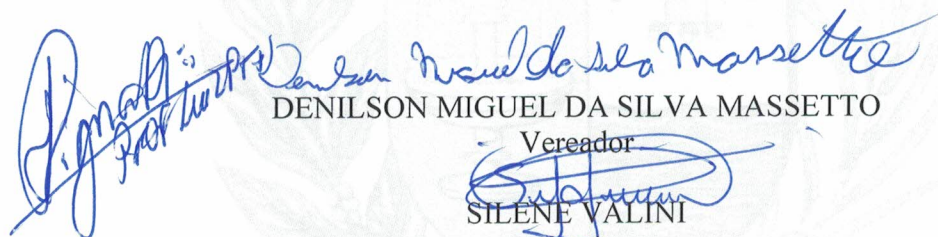 Denilson Miguel da Silva Massetto
DENILSON MIGUEL DA SILVA MASSETTO
Vereador
SILENE VALINI